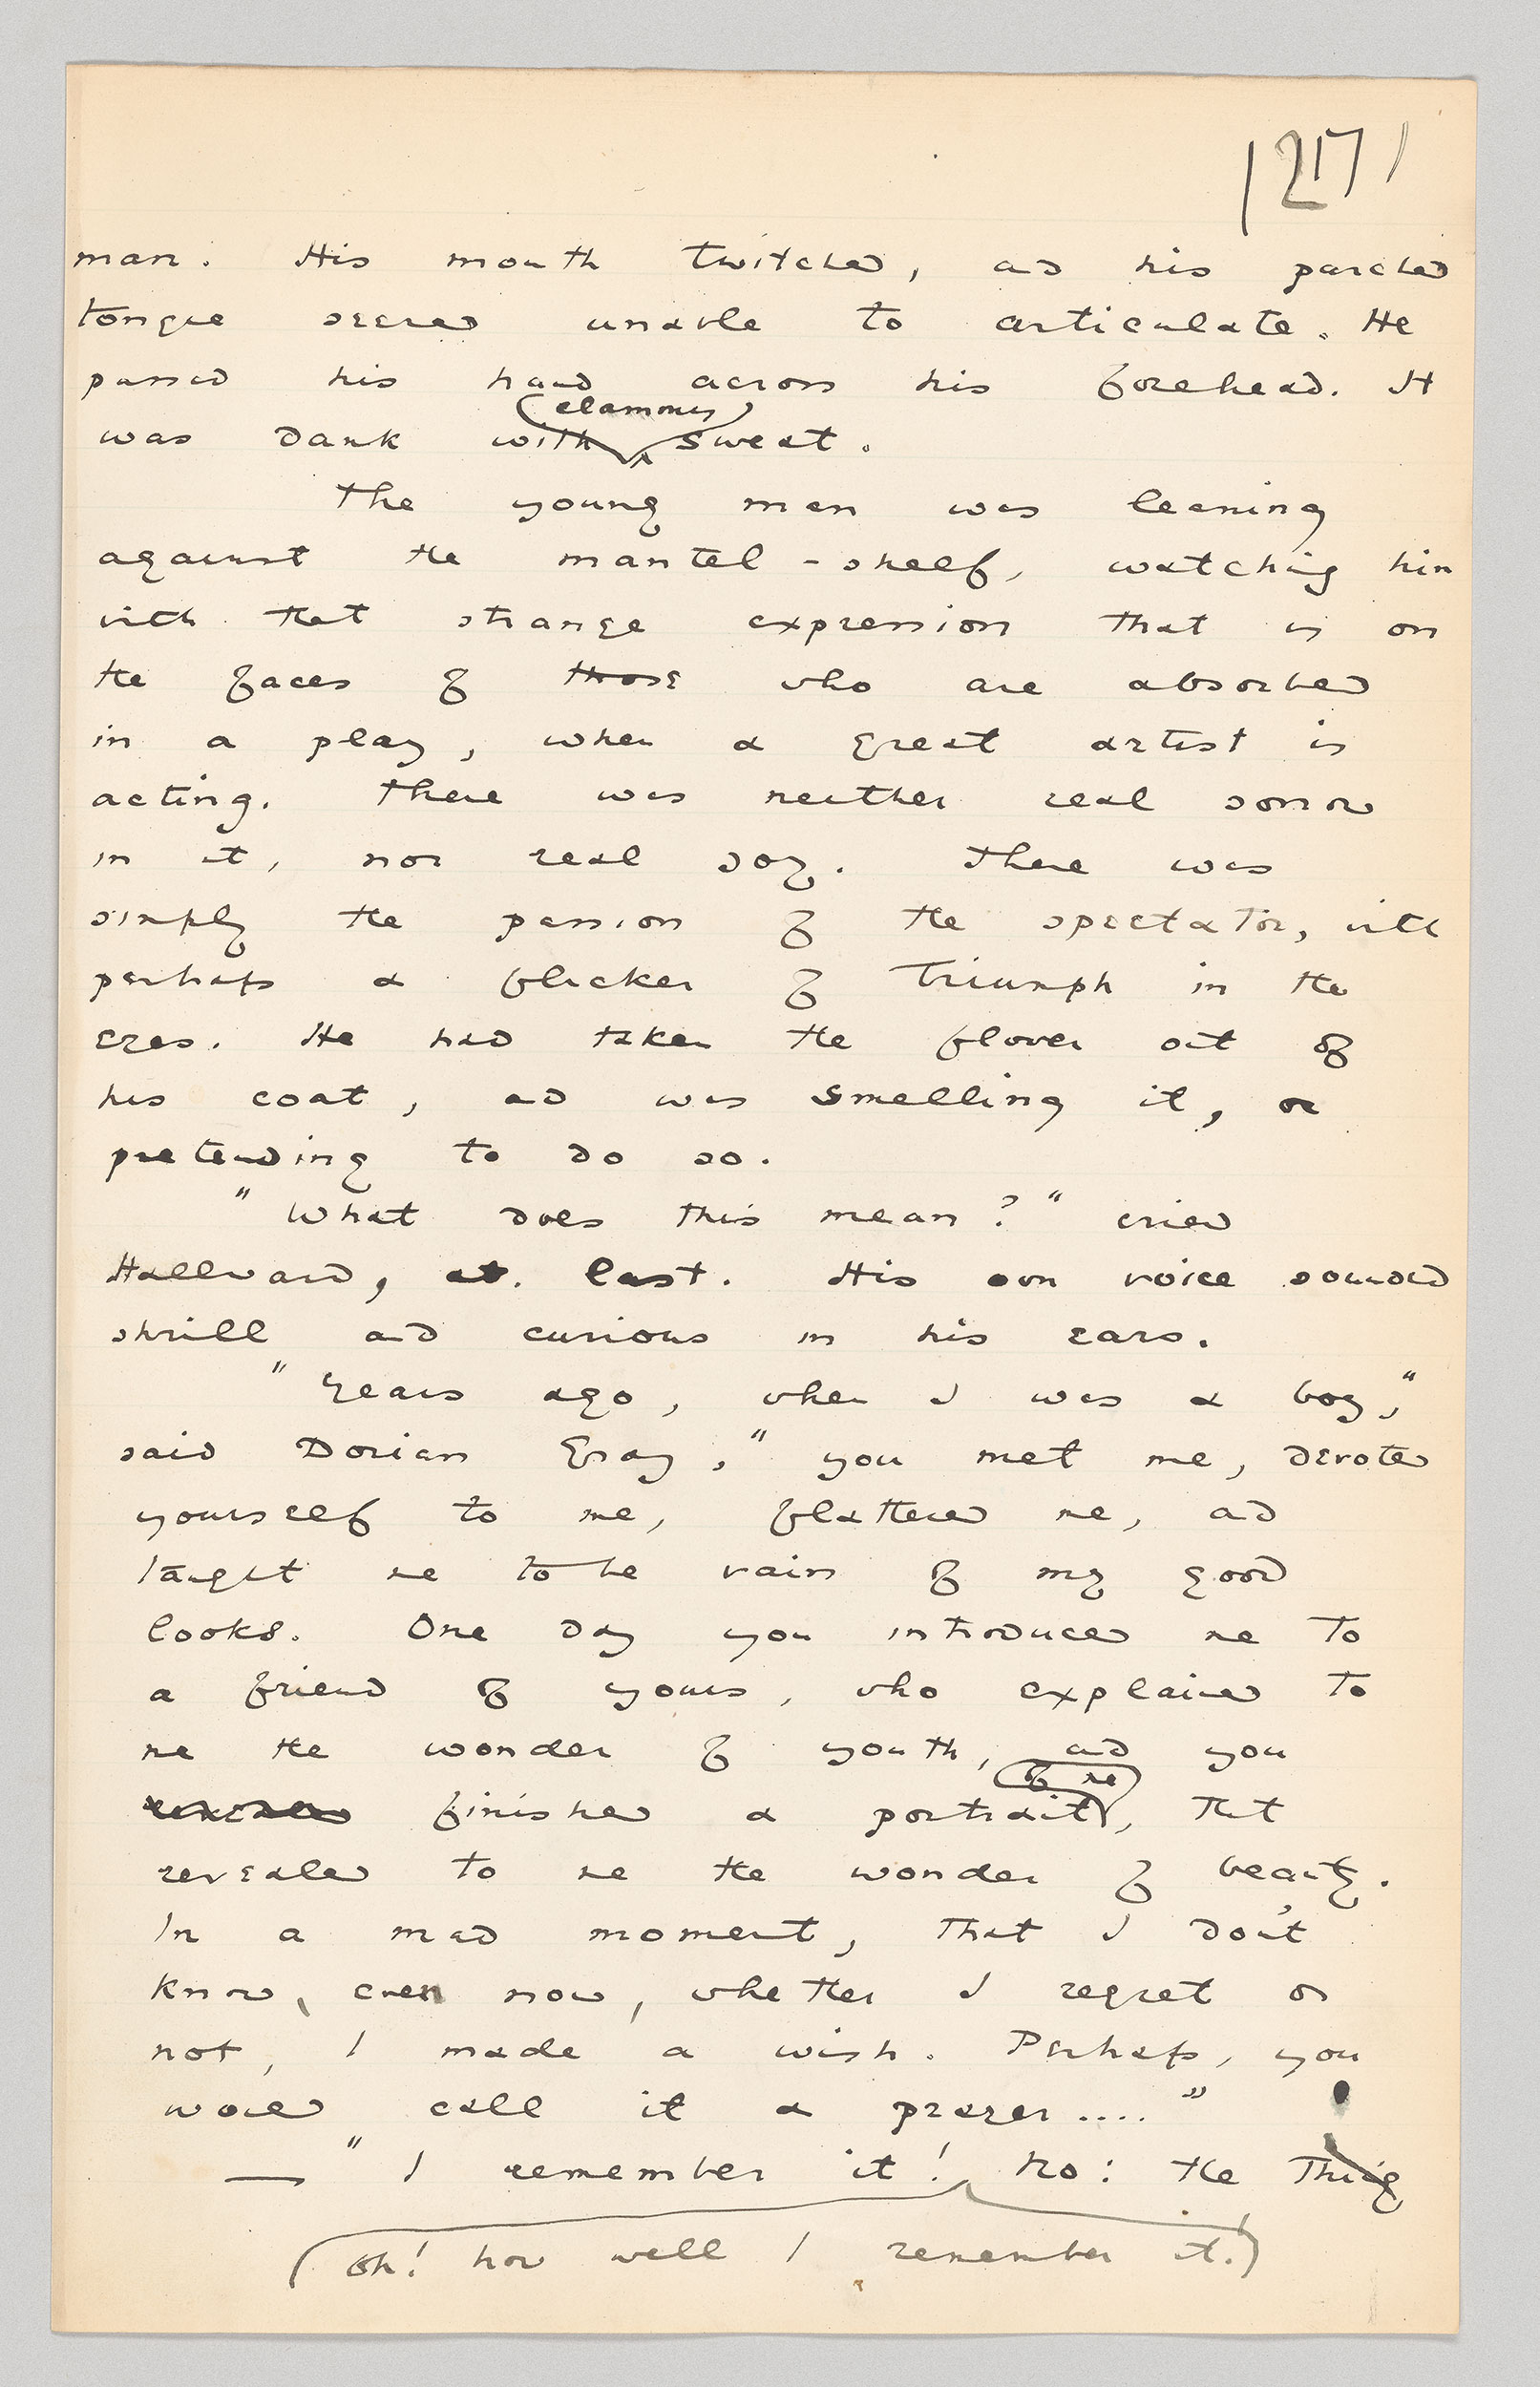 217
man. His mouth twitched, and his parched
tongue seemed unable to articulate. He
passed his hand across his forehead. It
clammy
was dank with sweat.
The young man was leaning
against the mantel-shelf, watching him
with that strange expression that is on
the faces of those who are absorbed
in a play, when a great artist is
acting. There was neither real sorrow
in it, nor real joy. There was
simply the passion of the spectator, with
perhaps a flicker of triumph in the
eyes. He had taken the flower out of
his coat, and was smelling it, or
pretending to do so.
"What does this mean?" cried
Hallward, at last. His own voice sounded
shrill and curious in his ears.
"Years ago, when I was a boy,"
said Dorian Gray, "you met me, devoted
yourself to me, flattered me, and
taught me to be vain of my good
looks. One day you introduced me to
a friend of yours, who explained to
me the wonder of youth, and you
of me
finished a portrait, that
revealed to me the wonder of beauty.
In a mad moment, that I don't
know, even now, whether I regret or
not, I made a wish. Perhaps, you
would call it a prayer...."
— "I remember it! No: the thing
Oh! how well I remember it!